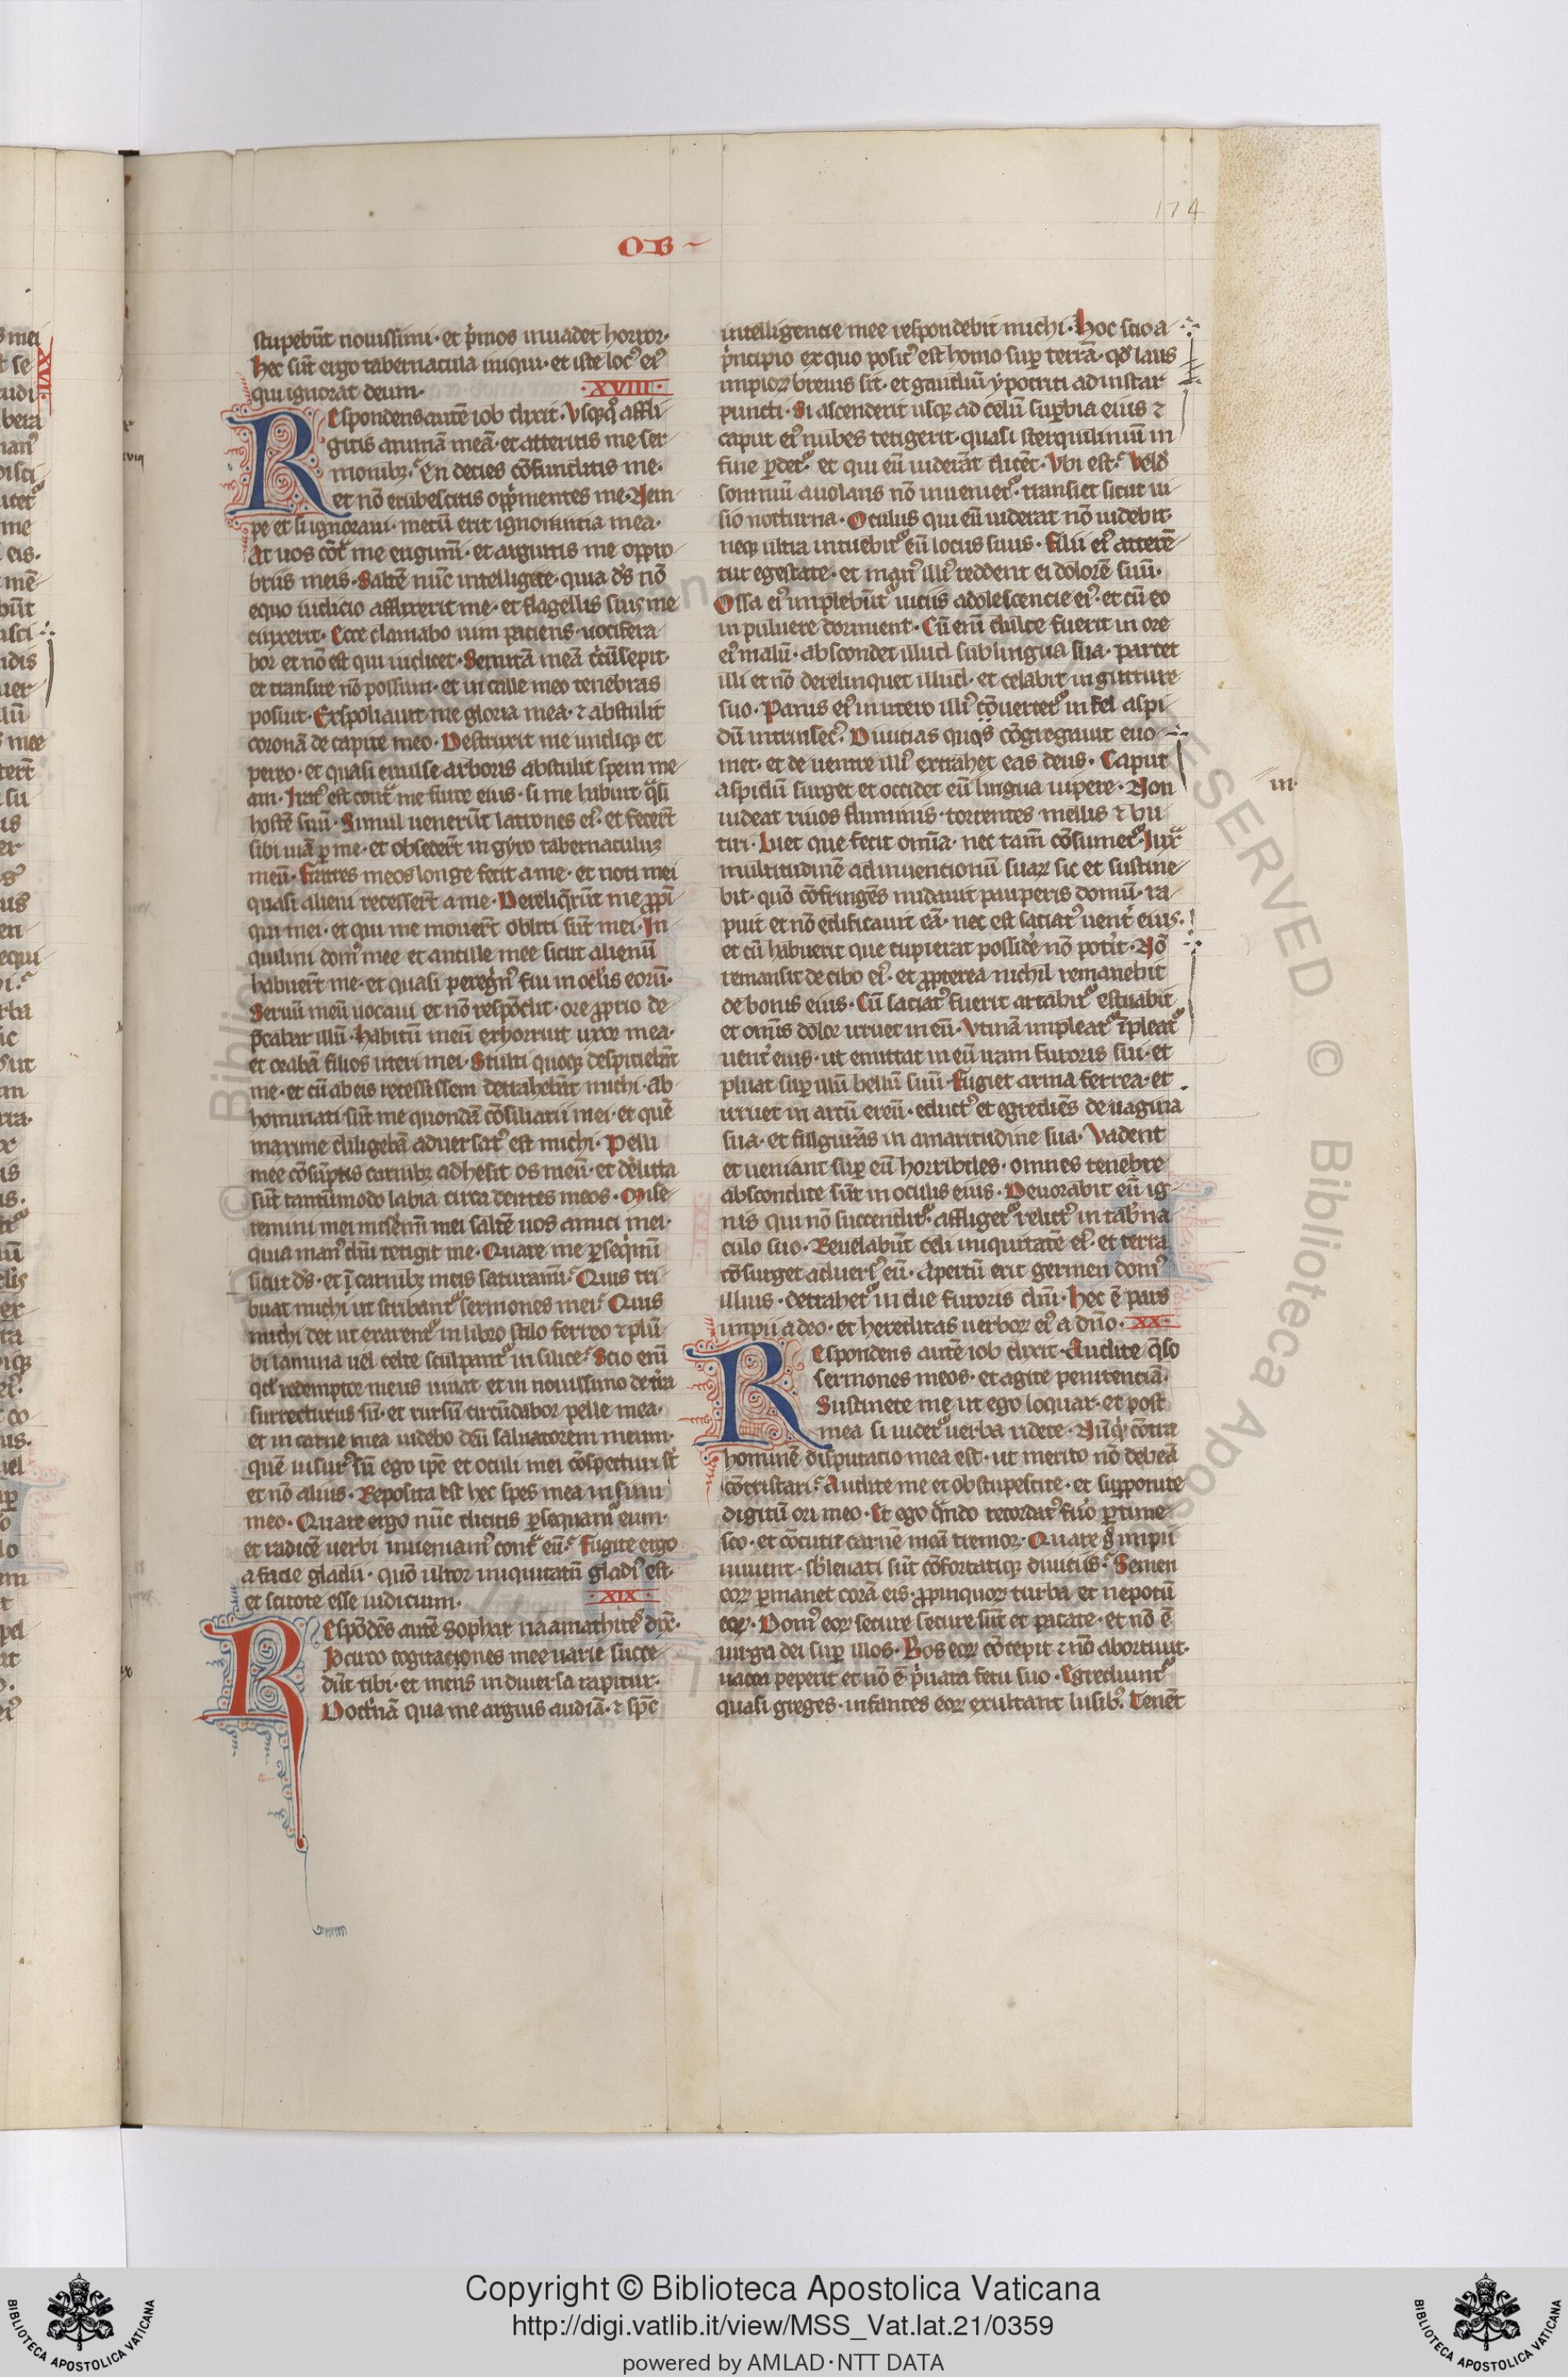 174
OB
stupebūt nouissimi · et pͥmos inuadet horror ·
hec sūt ergo tabernacula iniqui · et iste locꝰ eiꝰ
qui ignorat deum · · XVIII ·
Respondens autē iob dixit · Usqꝫqͦ affli
gitis animā meā · et atteritis me ser
monibꝫ · En decies cōfunditis me ·
et nō erubescitis oppͥmentes me · Nem
pe et si ignoraui · mecū erit ignorantia mea ·
At uos cōtͣ me erigimī · et arguitis me oppro
briis meis · Saltē nūc intelligite · quia dꝰs nō
equo iudicio afflixerit me · et flagellis suis me
cinxerit · Ecce clamabo uim paciens · uocifera
bor et nō est qui iudicet · Semitā meā cͥcūsepit ·
et transire nō possum · et in calle meo tenebras
posuit · Exspoliauit me gloria mea · ⁊ abstulit
coronā de capite meo · Destruxit me undiqꝫ et
pereo · et quasi euulse arboris abstulit spem me
am · Iratꝰ est contͣ me furor eius · si me habuit qͣsi
hostē suū · Simul uenerūt latrones eiꝰ · et fecerūt
sibi uiā ꝑ me · et obsederūt in gyro tabernaculuꝫ
meū · Fratres meos longe fecit a me · et noti mei
quasi alieni recesserūt a me · Dereliqͥrūt me ꝓpī
qui mei · et qui me nouerūt obliti sūt mei · In
quilini domꝰ mee et ancille mee sicut alienū
habuerūt me · et quasi peregͥnꝰ fui in oclꝰis eorū ·
Seruū meū uocaui et nō respōdit · ore ꝓprio de
ꝓcabar illū · Habitū meū exhorruit uxor mea ·
et orabā filios uteri mei · Stulti quoqꝫ despiciebāt
me · et cū ab eis recessissem detrahebāt michi · Ab
hominati sūt me quondā cōsiliarii mei · et quē
maxime diligebā aduersatꝰ est michi · Pelli
mee cōsūptis carnibꝫ adhesit os meū · et derelicta
sūt tantūmodo labia circa dentes meos · Mise
remini mei miseremī mei saltē uos amici mei ·
quia manꝰ dnī tetigit me · Quare me ꝑseqͥmī
sicut dꝰs · et ī carnibꝫ meis saturamī · Quis tri
buat michi ut scribantꝰ sermones mei · Quis
michi det ut exarentꝰ in libro stilo ferreo ⁊ plū
bi lamina uel celte sculpantꝰ in silice · Scio enī
qd redemptor meus uiuat et in nouissimo de tͥra
surrecturus sū · et rursū circūdabor pelle mea ·
et in carne mea uidebo deū saluatorem meum ·
quē uisurꝰ sū ego ipē et oculi mei cōspecturi st
et nō alius · Reposita est hec spes mea in sinu
meo · Quare ergo nūc dicitis ꝑsequamꝰ eum ·
et radicē uerbi inueniamꝰ contͣ eū · Fugite ergo
a facie gladii · quō ultor iniquitatū gladiꝰ est ·
et scitote esse iudicium · · XIX ·
Respōdēs autē sophar naamathites dix̄ ·
Idcirco cogitationes mee uarie succe
dūt tibi · et mens in diuersa rapitur ·
Doctͥnā qua me arguis audiā · ⁊ spc̄
intelligencie mee respondebit michi · Hoc scio a
pͥncipio ex quo positꝰ est homo suꝑ terrā · qd laus
impioꝝ breuis sit · et gaudiū ypocriti ad instar
puncti · Si ascenderit usqꝫ ad celū suꝑbia eius ⁊
caput eiꝰ nubes tetigerit · quasi sterquiliniū in
fine ꝑdetꝰ · et qui eū uiderāt dicēt · Ubi est · Uelud
somniū auolans nō inuenietꝰ · transiet sicut ui
sio nocturna · Oculus qui eū uiderat nō uidebit ·
neqꝫ ultra intuebitꝰ eū locus suus · Filii eiꝰ atterē
tur egestate · et manꝰ illiꝰ reddent ei dolorē suū ·
Ossa eiꝰ implebūtꝰ uiciis adolescencie eiꝰ · et cū eo
in puluere dormient · Cū enī dulce fuerit in ore
eiꝰ malū · abscondet illud sub lingua sua · parcet
illi et nō derelinquet illud · et celabit in gutture
suo · Panis eiꝰ in utero illiꝰ cōuertetꝰ in fel aspi
dū intrinsecꝰ · Diuicias quas cōgregauit euo
met · et de uentre illiꝰ extrahet eas deus · Caput
aspidū surget et occidet eū lingua uipere · Non
uideat riuos fluminis · torrentes mellis ⁊ bu
tiri · Luet que fecit omīa · nec tam̄ cōsumetꝰ · Iux̄
multitudinē adinuentionū suaꝝ sic et sustine
bit · quō cōfringēs nudauit pauperis domū · ra
puit et nō edificauit eā · nec est saciatꝰ uentͥ eius ·
et cū habuerit que cupierat possidē nō potͥit · Nō
remansit de cibo eiꝰ · et ꝓpterea nichil remanebit
de bonis eius · Cū saciatꝰ fuerit artabitꝰ estuabit
et omīs dolor irruet in eū · Utinā impleatꝰ īpleatꝰ
uentͥ eius · ut emittat in eū iram furoris sui · et
pluat suꝑ illū bellū suū · Fugiet arma ferrea · et
irruet in arcū ereū · eductꝰ et egrediēs de uagina
sua · et fulgurās in amaritudine sua · Uadent
et ueniant suꝑ eū horribiles · omnes tenebre
abscondite sūt in oculis eius · Deuorabit eū ig
nis qui nō succenditꝰ · affligetꝰ relictꝰ in tabͥna
culo suo · Reuelabūt celi iniquitatē eiꝰ · et terra
cōsurget aduersꝰ eū · Apertū erit germen domꝰ
illius · detrahetꝰ in die furoris dnī · Hec ē pars
impii a deo · et hereditas uerboꝝ eiꝰ a dn̄o · XX ·
Respondens autē iob dixit · Audite qͣso
sermones meos · et agite penitenciā ·
Sustinete me ut ego loquar · et post
mea si uidetꝰ uerba ridete · Nūqͥd cōtra
hominē disputatio mea est · ut merito nō debeā
cōtristari · Audite me et obstupescite · et supponite
digitū ori meo · Et ego qͣndo recordatꝰ fuͥo ꝑtime
sco · et cōcutit carnē meā tremor · Quare gͦ impii
uiuunt · sbleuati sūt cōfortatiqꝫ diuiciis · Semen
eoꝝ ꝑmanet corā eis · ꝓpinquoꝝ turba et nepotū
eoꝝ · Domꝰ eoꝝ secure secure sūt et pacate · et nō ē
uirga dei suꝑ illos · Bos eoꝝ cōcepit ⁊ nō abortiuit ·
uacca peperit et nō ē pͥuata fetu suo · Egrediuntꝰ
quasi greges · infantes eoꝝ exultant lusibꝰ · Tenēt
Copyright © Biblioteca Apostolica Vaticana
http://digi.vatlib.it/view/MSS_Vat.lat.21/0359
powered by AMLAD·NTT DATA
BIBLIOTECA APOSTOLICA VATICANA
BIBLIOTECA APOSTOLICA VATICANA